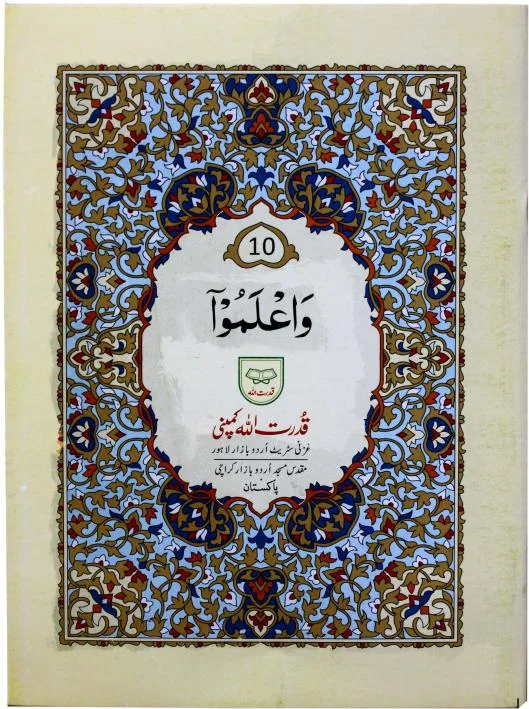 10
وَاعْلَمُوْٓا
قدرت اللہ
قُدرت اللہ کمپنی
غزنی سٹریٹ اُردو بازار لاہور
مقدس مسجد اُردو بازار کراچی
پاکستان